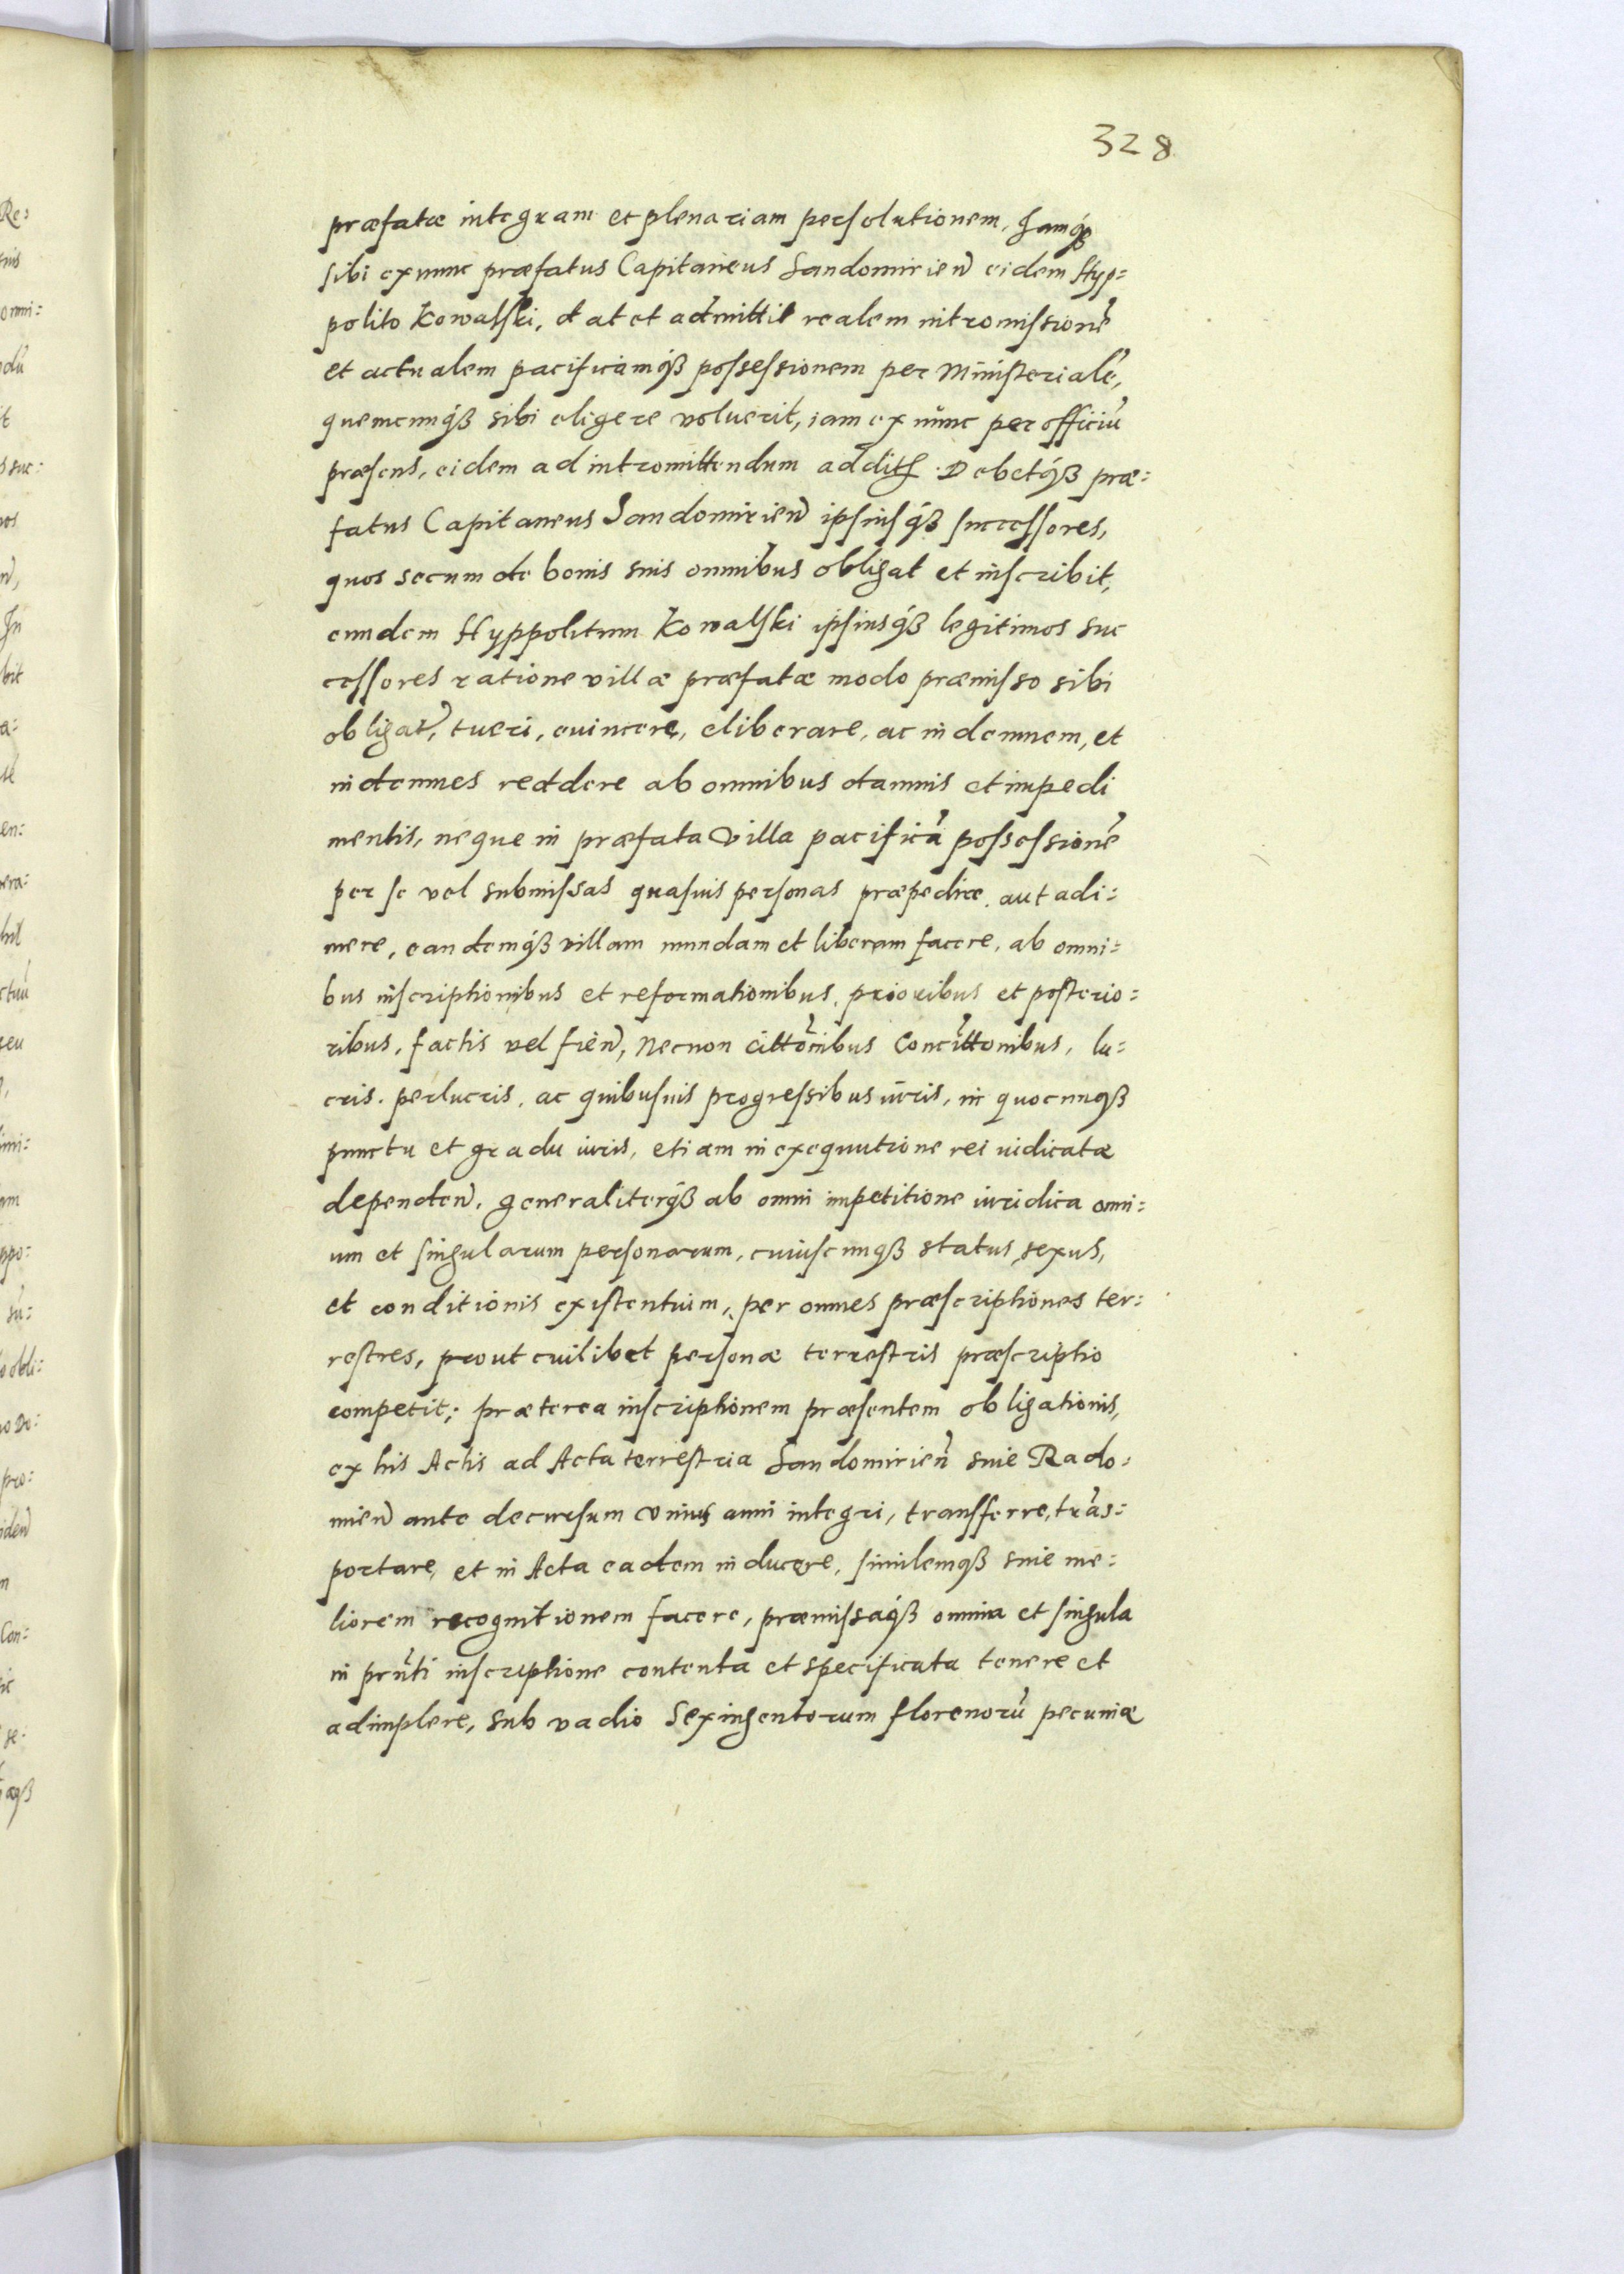 328
præfatæ integram et plenariam persolutionem, Jamq́
sibi ex nunc præfatus Capitaneus Sandomirien̄ eidem Hyp=
polito Kowalski, dat et admittit realem intromissionē
et actualem pacificamq́ꝫ possessionem per Ministerialē,
quemcunq́ꝫ sibi eligere voluerit, iam ex nunc per officiū
præsens, eidem ad intromittendum addit~. Debetq́ꝫ præ=
fatus Capitaneus Sandomirien̄ ipsiusq́ꝫ successores,
quos secum de bonis suis omnibus obligat et inscribit,
eundem Hyppolitum Kowalski ipsiusq́ꝫ legitimos suc
cessores ratione villæ præfatæ modo præmisso sibi
obligat~, tueri, euincere, eliberare, ac indemnem, et
indemnes reddere ab omnibus damnis et impedi
mentis, neque in præfata Villa pacificā possessionē
per se vel submissas quasuis personas præpedire, aut adi=
mere, eandemq́ꝫ villam mundam et liberam facere, ab omni=
bus inscriptionibus et reformationibus, prioribus et posterio=
ribus, factis vel fien̄, Necnon citto̅nibus Conci̅ttonibus, lu=
cris. perlucris, ac quibusuis progressibus iuris, in quocunqꝫ
punctu et gradu iuris, etiam in exequutione rei iudicatæ
dependen̄. generaliterq́ꝫ ab omni impetitione iuridica omni=
um et singularum personarum, cuiuscunqꝫ status sexus,
et conditionis existentium, per omnes præscriptiones ter=
restres, prout cuilibet personæ terrestris præscriptio
competit; præterea inscriptionem præsentem obligationis,
ex his Actis ad Acta terrestria Sandomirien̄ siue Rado=
mien̄ ante decursum Vnius anni integri, transferre, trās=
portare, et in Acta eadem inducere, similemqꝫ siue me=
liorem recognitionem facere, præmissaq́ꝫ omnia et singula
in prn̄ti inscriptione contenta et specificata tenere et
adimplere, sub vadio Sexingentorum florenorū pecuniæ